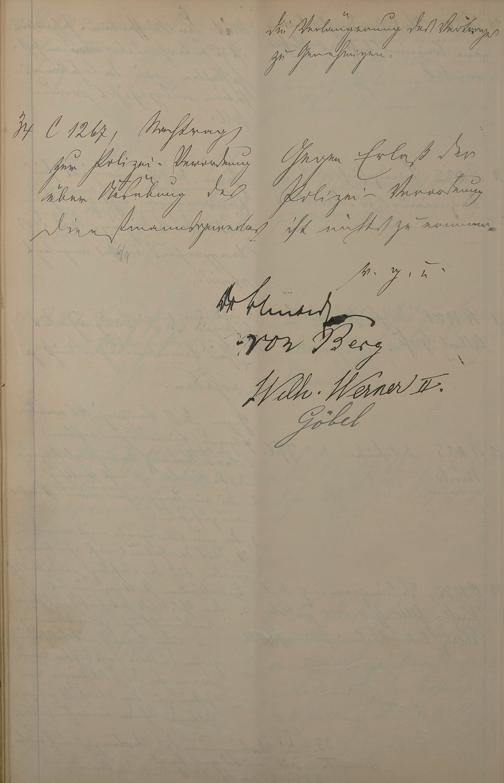 die Verlängerung des Vertrages
zu genehmigen.
34 C 1267, Nachtrag
zur Polizei-Verordnung
über Ausübung des
Dienstmannsgewerbes
Gegen Erlaß der
Polizei-Verordnung
ist nichts zu erinnern.
v. g. u.
von Berg
Wilh. Werner II.
Göbel